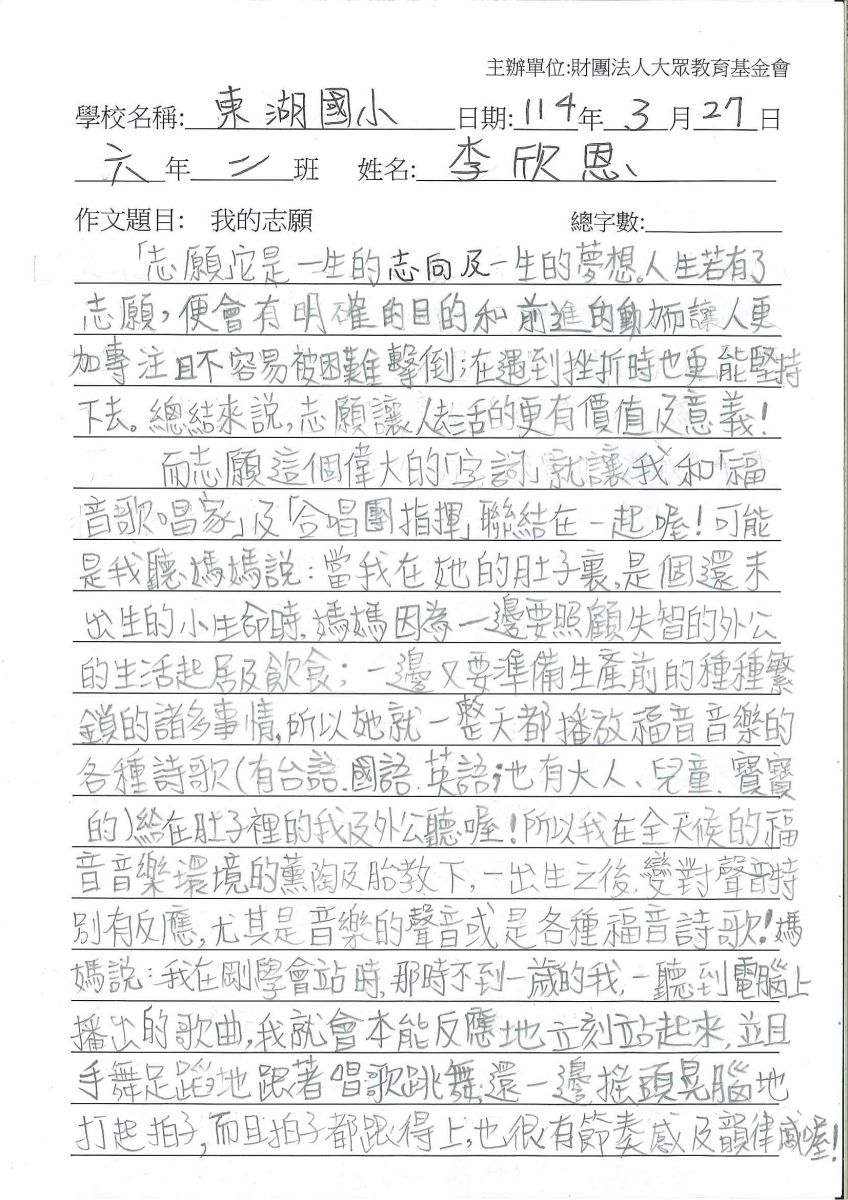 主辦單位:財團法人大眾教育基金會
學校名稱:東湖國小 日期:114年3月27日
六年二班 姓名:李欣恩
作文題目: 我的志願 總字數:
「志願」它是一生的志向及一生的夢想。人生若有了
志願,便會有明確的目的和前進的動力而讓人更
加專注且不容易被困難擊倒;在遇到挫折時也更能堅持
下去。總結來說,志願讓人生活的更有價值及意義!
而志願這個偉大的「字詞」就讓我和「福
音歌唱家」及「合唱團指揮」聯結在一起喔!可能
是我聽媽媽說:當我在她的肚子裏,是個還未
出生的小生命時,媽媽因為一邊要照顧失智的外公
的生活起居及飲食;一邊又要準備生產前的種種繁
鎖的諸多事情,所以她就一整天都播放福音音樂的
各種詩歌(有台語、國語、英語;也有大人、兒童、寶寶
的)給在肚子裡的我及外公聽喔!所以我在全天候的福
音音樂環境的薰陶及胎教下,一出生之後,變對聲音特
別有反應,尤其是音樂的聲音或是各種福音詩歌!媽
媽說:我在剛學會站時,那時不到一歲的我,一聽到電腦上
播出的歌曲,我就會本能反應地立刻站起來,並且
手舞足蹈地跟著唱歌跳舞,還一邊搖頭晃腦地
打起拍子,而且拍子都跟得上,也很有節奏感及韻律感喔!